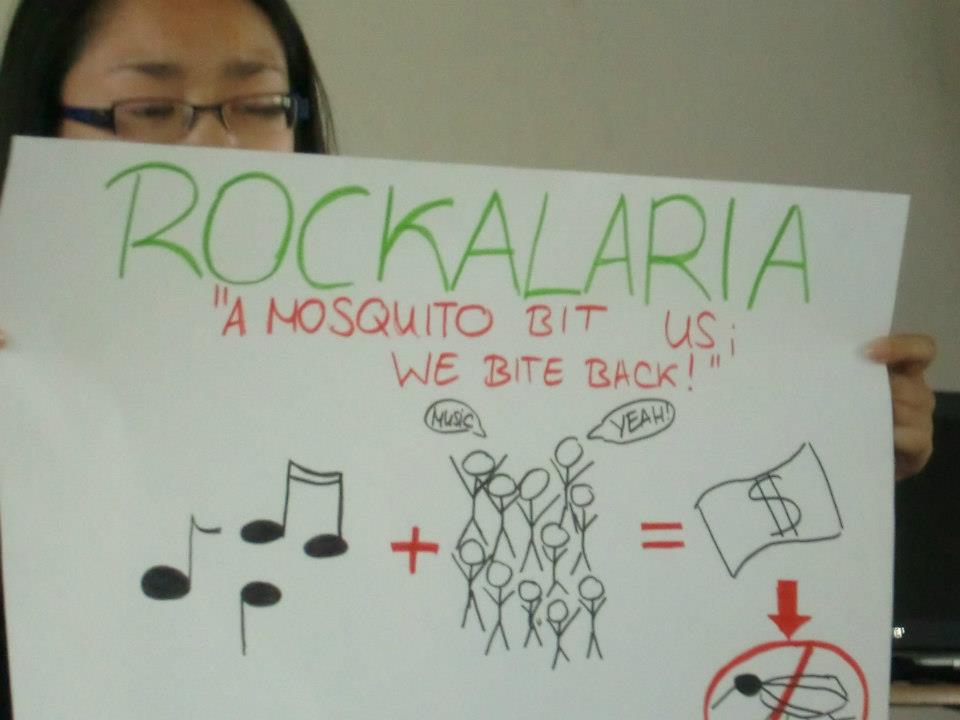 ROCKALARIA
"A MOSQUITO BIT US;
WE BITE BACK!"
MUSIC
YEAH!
+
=
$